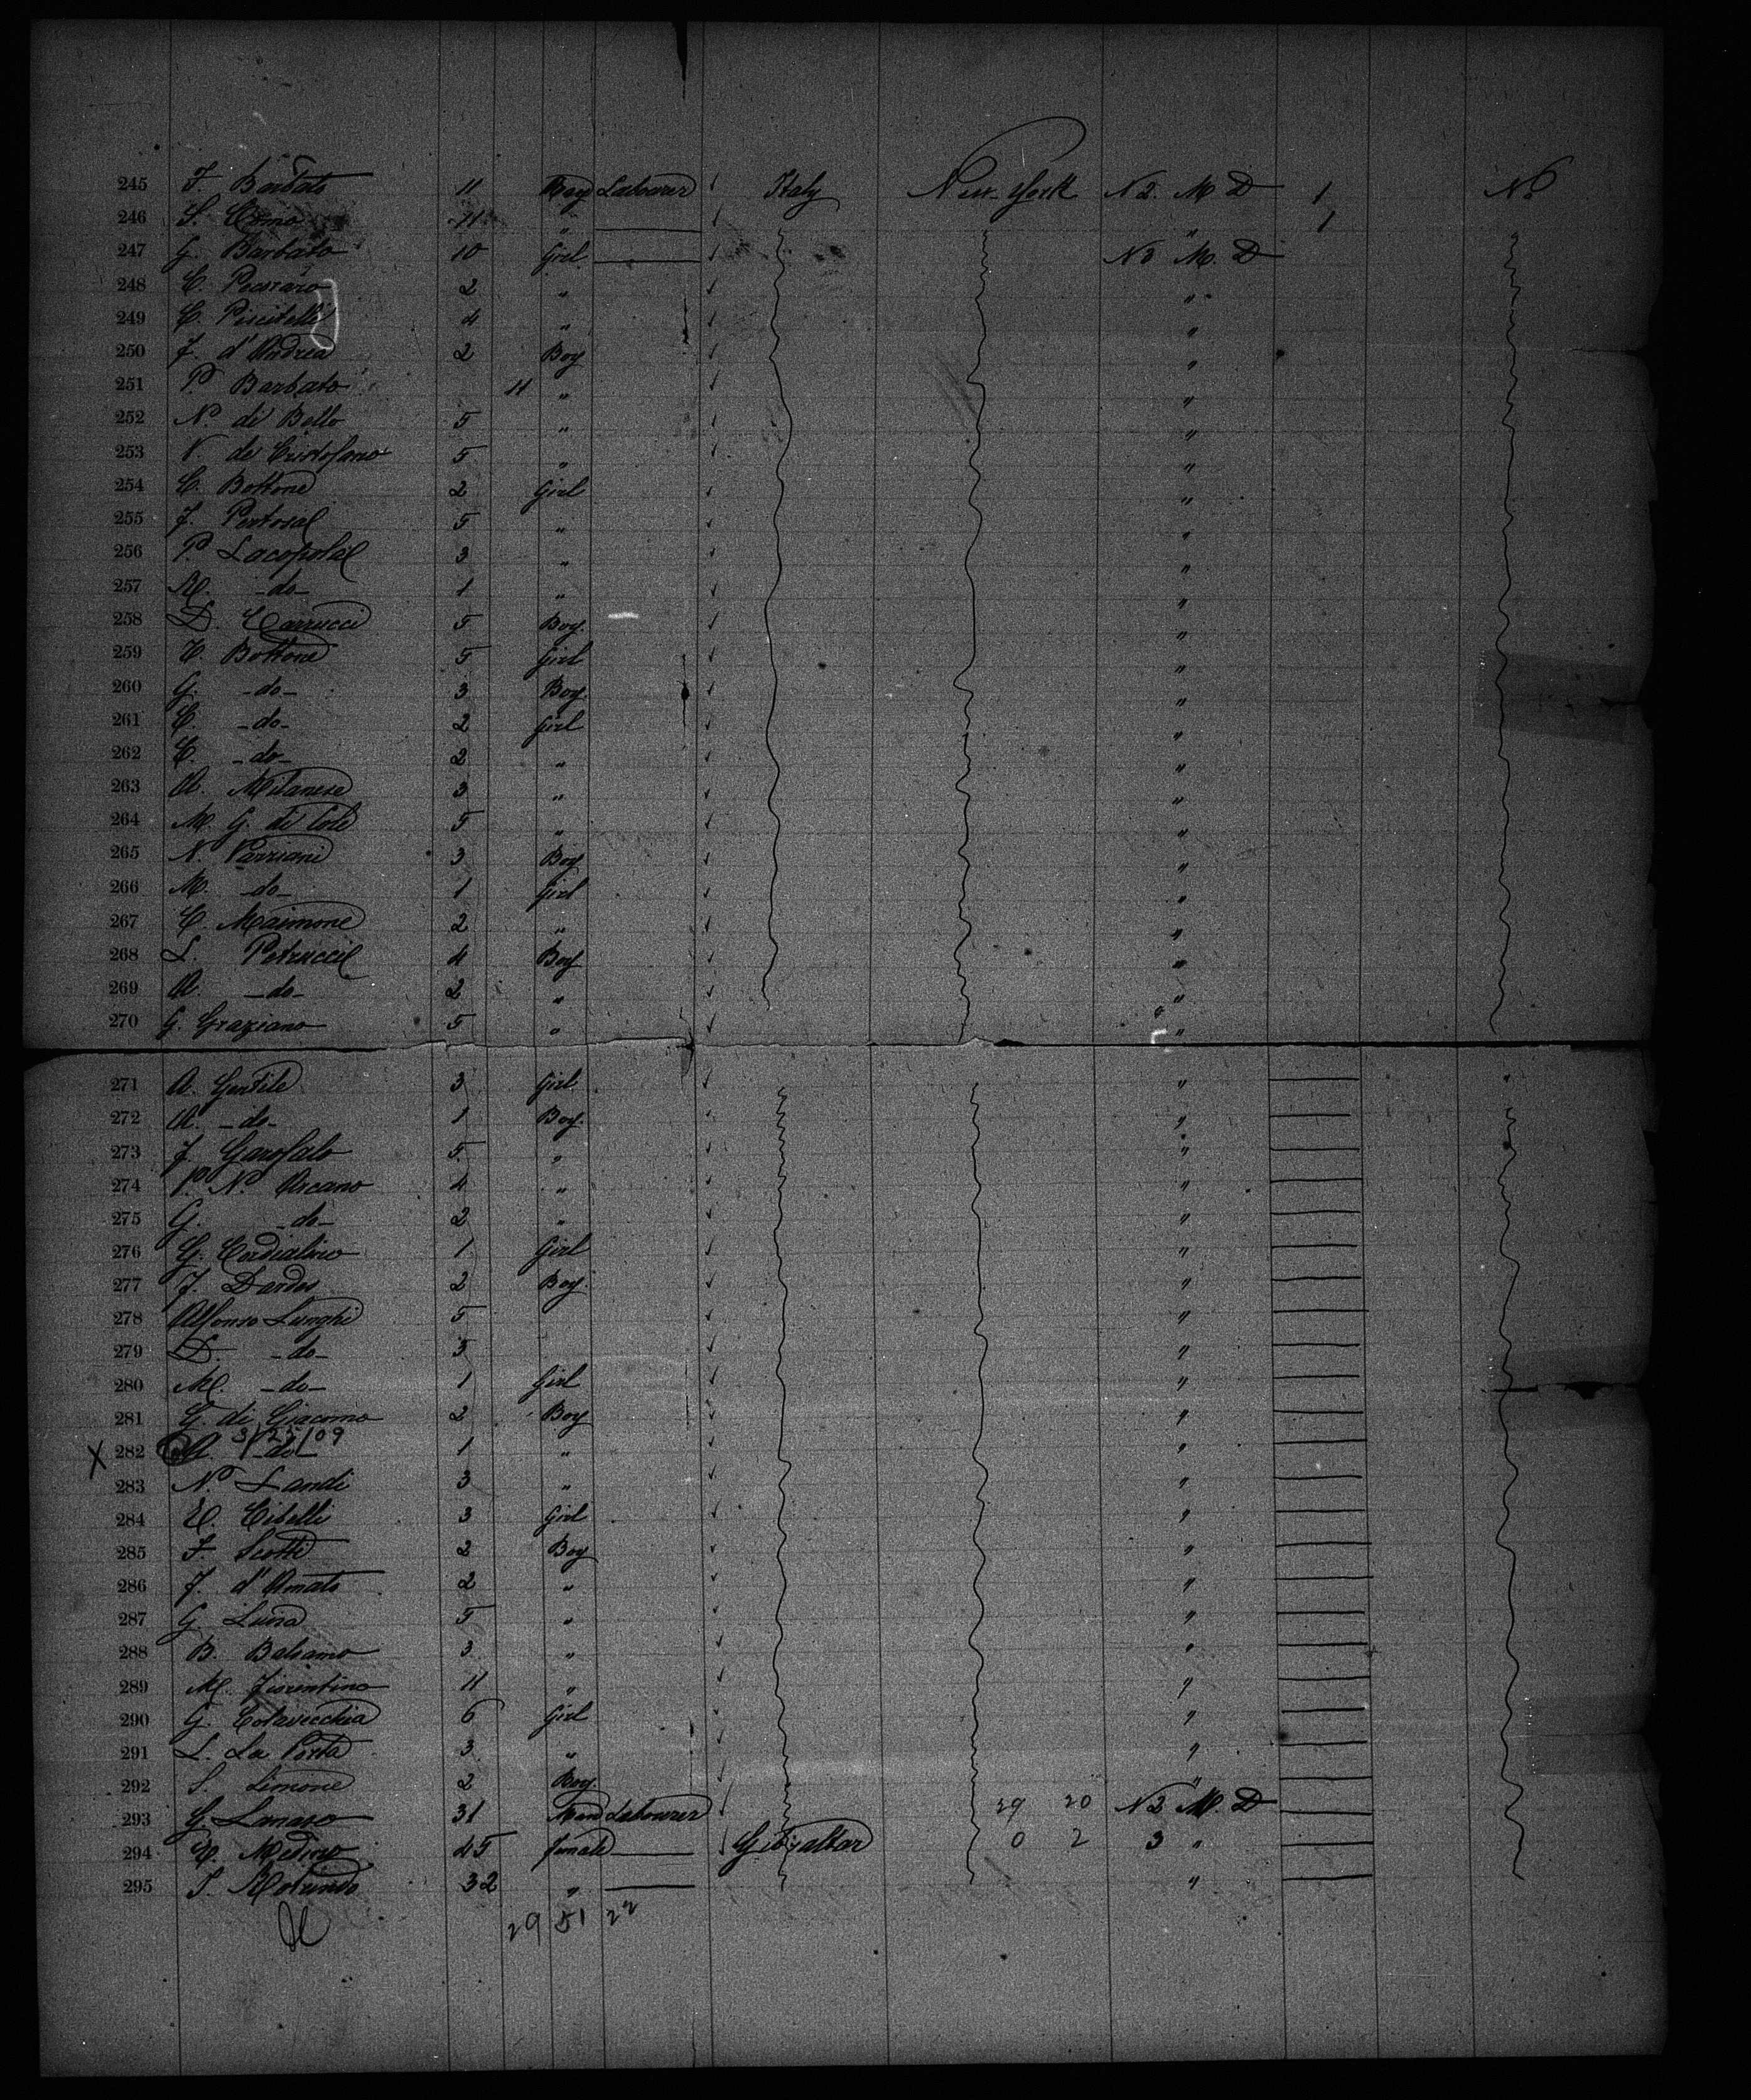 245 F. Barbato 11 Boy Labourer ✓ Italy New-York N 2. M D 1 No
246 S. Como 11 " ✓ " 1
247 G. Barbato 10 Girl ✓ N 3 M. D
248 C. Pecoraro 2 " ✓ "
249 C. Piscitelli 4 " ✓ "
250 F. d'Andrea 2 Boy ✓ "
251 P. Barbato 11 " ✓ "
252 N. di Bello 5 " ✓ "
253 V. de Cristofano 5 " ✓ "
254 C. Bottone 2 Girl ✓ "
255 F. 5 " ✓ "
256 P. 3 " ✓ "
257 M. -do- 1 " ✓ "
258 D. Carrucci 5 Boy. ✓ "
259 C. Bottone 5 Girl ✓ "
260 G. -do- 3 Boy. ✓ "
261 C. -do- 2 Girl ✓ "
262 C. -do- 2 " ✓ "
263 A. Milanese 3 " ✓ "
264 M. G. di Cole 5 " ✓ "
265 N. 3 Boy ✓ "
266 M. -do- 1 Girl ✓ "
267 C. Maimone 2 " ✓ "
268 L. Petrucci 4 Boy ✓ "
269 A. -do- 2 " ✓ "
270 G. Graziano 5 " ✓ "
271 A. Gentile 3 Girl ✓ "
272 A. -do- 1 Boy. ✓ "
273 F. Garofalo 5 " ✓ "
274 P. N. Arcano 4 " ✓ "
275 G. -do- 2 " ✓ "
276 G. Cordialino 1 Girl ✓ "
277 F. Dardes 2 Boy. ✓ "
278 Alfonso Lunghi 5 ✓ "
279 D. -do- 3 ✓ "
280 M. -do- 1 Girl ✓ "
281 G. di Giacomo 2 Boy ✓ "
3/25/09
X 282 A. -do- 1 " ✓ "
283 N. Landi 3 " ✓ "
284 Cibelli 3 Girl ✓ "
285 F. Scotti 2 Boy ✓ "
286 F. d'Amato 2 " ✓ "
287 G. Luisa 5 " ✓ "
288 B. Balsamo 3 " ✓ "
289 M. Fiorentino 11 " ✓ "
290 G. Colavecchia 6 Girl ✓ "
291 L. La Porta 3 " ✓ "
292 S. Simone 2 Boy. ✓ "
293 G. Lanaro 31 Man Labourer ✓ 29 20 N 2 M. D
294 45 female ✓ Gibraltar 0 2 3 "
295 32 " "
29 51 22